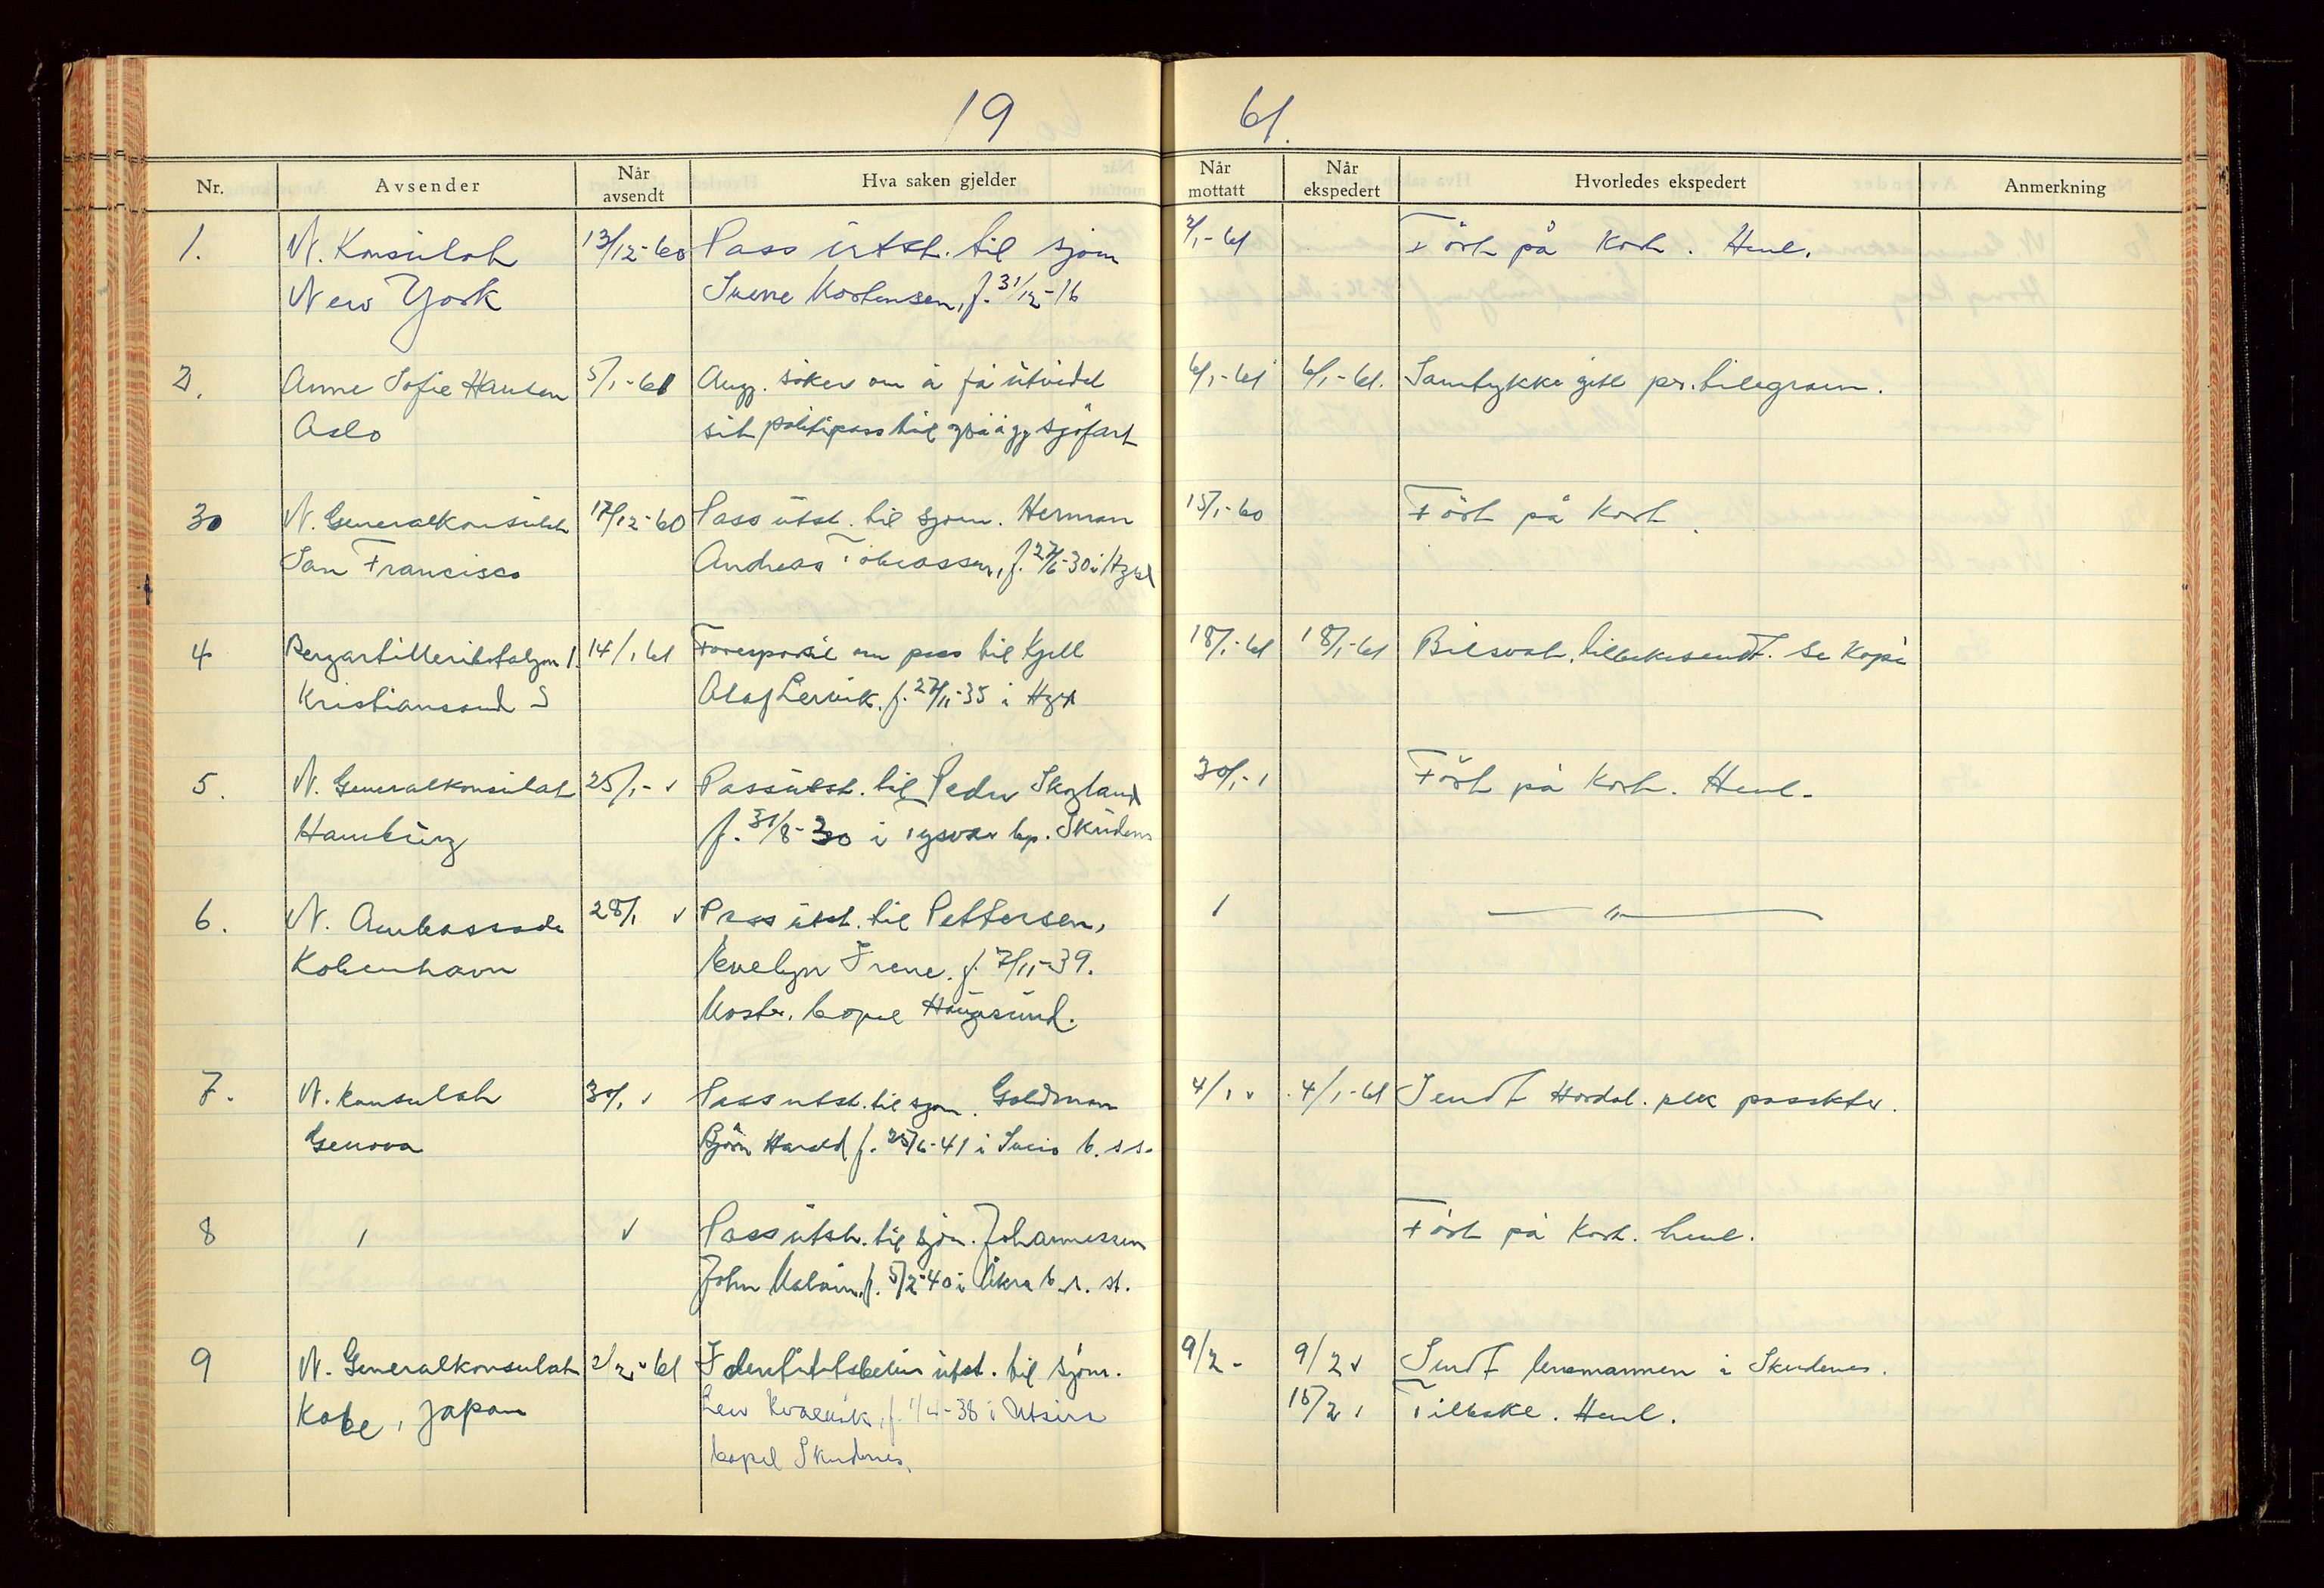 19 61.
Nr. Avsender Når avsendt Hva saken gjelder Når mottatt Når ekspedert Hvorledes ekspedert Anmerkning
1. N. Konsulat 13/12-60 Pass utst. til sjøm 2/1-61 Ført på kort. Henl.
New York Mortensen, f. 31/12-16
2. Anne Sofie Hansen 5/1-61 Ang. søker om å få utvidet 6/1-61 6/1-61. Samtykke gitt pr. telegram.
Oslo sit politipass til sjøfart
3. N. Generalkonsulat 17/12-60 Pass utst. til sjøm. Herman 15/1-60 Ført på kort.
San Francisco Andreas Tobiassen, f. 27/6-30 i
4 1. 14/1 61 Forespørsel om pass til Kjell 18/1-61 18/1-61 tilbakesendt. Se kopi
Kristiansand S Olaf Lervik. f. 27/11-35 i
5. N. Generalkonsulat 25/1- Pass utst. til Peder Skogland 30/1- Ført på kort. Henl.
Hamburg f. 31/8-30 i Tysvær bp. Skudenes
6. N. Ambassade 28/1 Pass utst. til Pettersen, — " —
København Evelyn Irene. f. 7/11-39.
bopel Haugesund.
7. N. Konsulat 30/1 Pass utst. til sjøm. Goldman 4/1 4/1-61 Sendt Hordal. plk passktr.
Genova Bjørn Harald f. 25/6-41 i b. s.s.
8 Pass utst. til sjøm. Johannessen Ført på kort. henl.
John f. 5/2-40 i Åkra b. s. st.
9 N. Generalkonsulat 2/2-61 Identitetsbevis utst. til sjøm. 9/2- 9/2 Sendt lensmannen i Skudenes.
Kobe, Japan Kvalvik, f. 1/4-38 i Utsira 15/2 Tilbake. Henl.
bopel Skudenes.